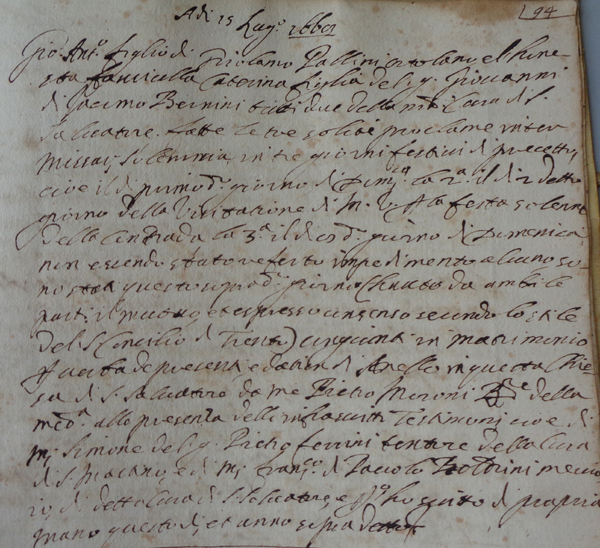 94
Adi 15 Lug.o 1660
Gio: Ant.o figlio di Girolamo Pallini ortolano el hone-
sta fanciulla Caterina figlia del q. Giovanni
di Giacimo Bernini tutti due della nrã Cura di S.
Salvatore. fatte le tre solite proclame inter
Missar. Solemnia, in tre giorni festivi di precetto,
cioe il di primo d.o giorno di Dom.ca la 2.a il di 2 detto
giorno della Visitatione di M. V. festa solenne
della Contrada la 3.a il di d.o giorno di Domenica
non essendo stato referto impedimento alcuno so-
no stati questo d.o giorno da ambi le
parti il mutuo, et espresso consenso secondo lo stile
del S. Concilio di Trento) congiunti in matrimonio
de presenti e datione di Anello in questa Chie-
sa di S. Salvatore da me Pietro Moroni della
med.a alla presenza delli infrascritti Testimoni cioe di
M. Simone del q. Pietro ferrini della Cura
di S. e di M. Fran.co di Paolo
di detta Cura di S. Salvatore, e ho scritto di propria
mano questo di, et anno sopra detto